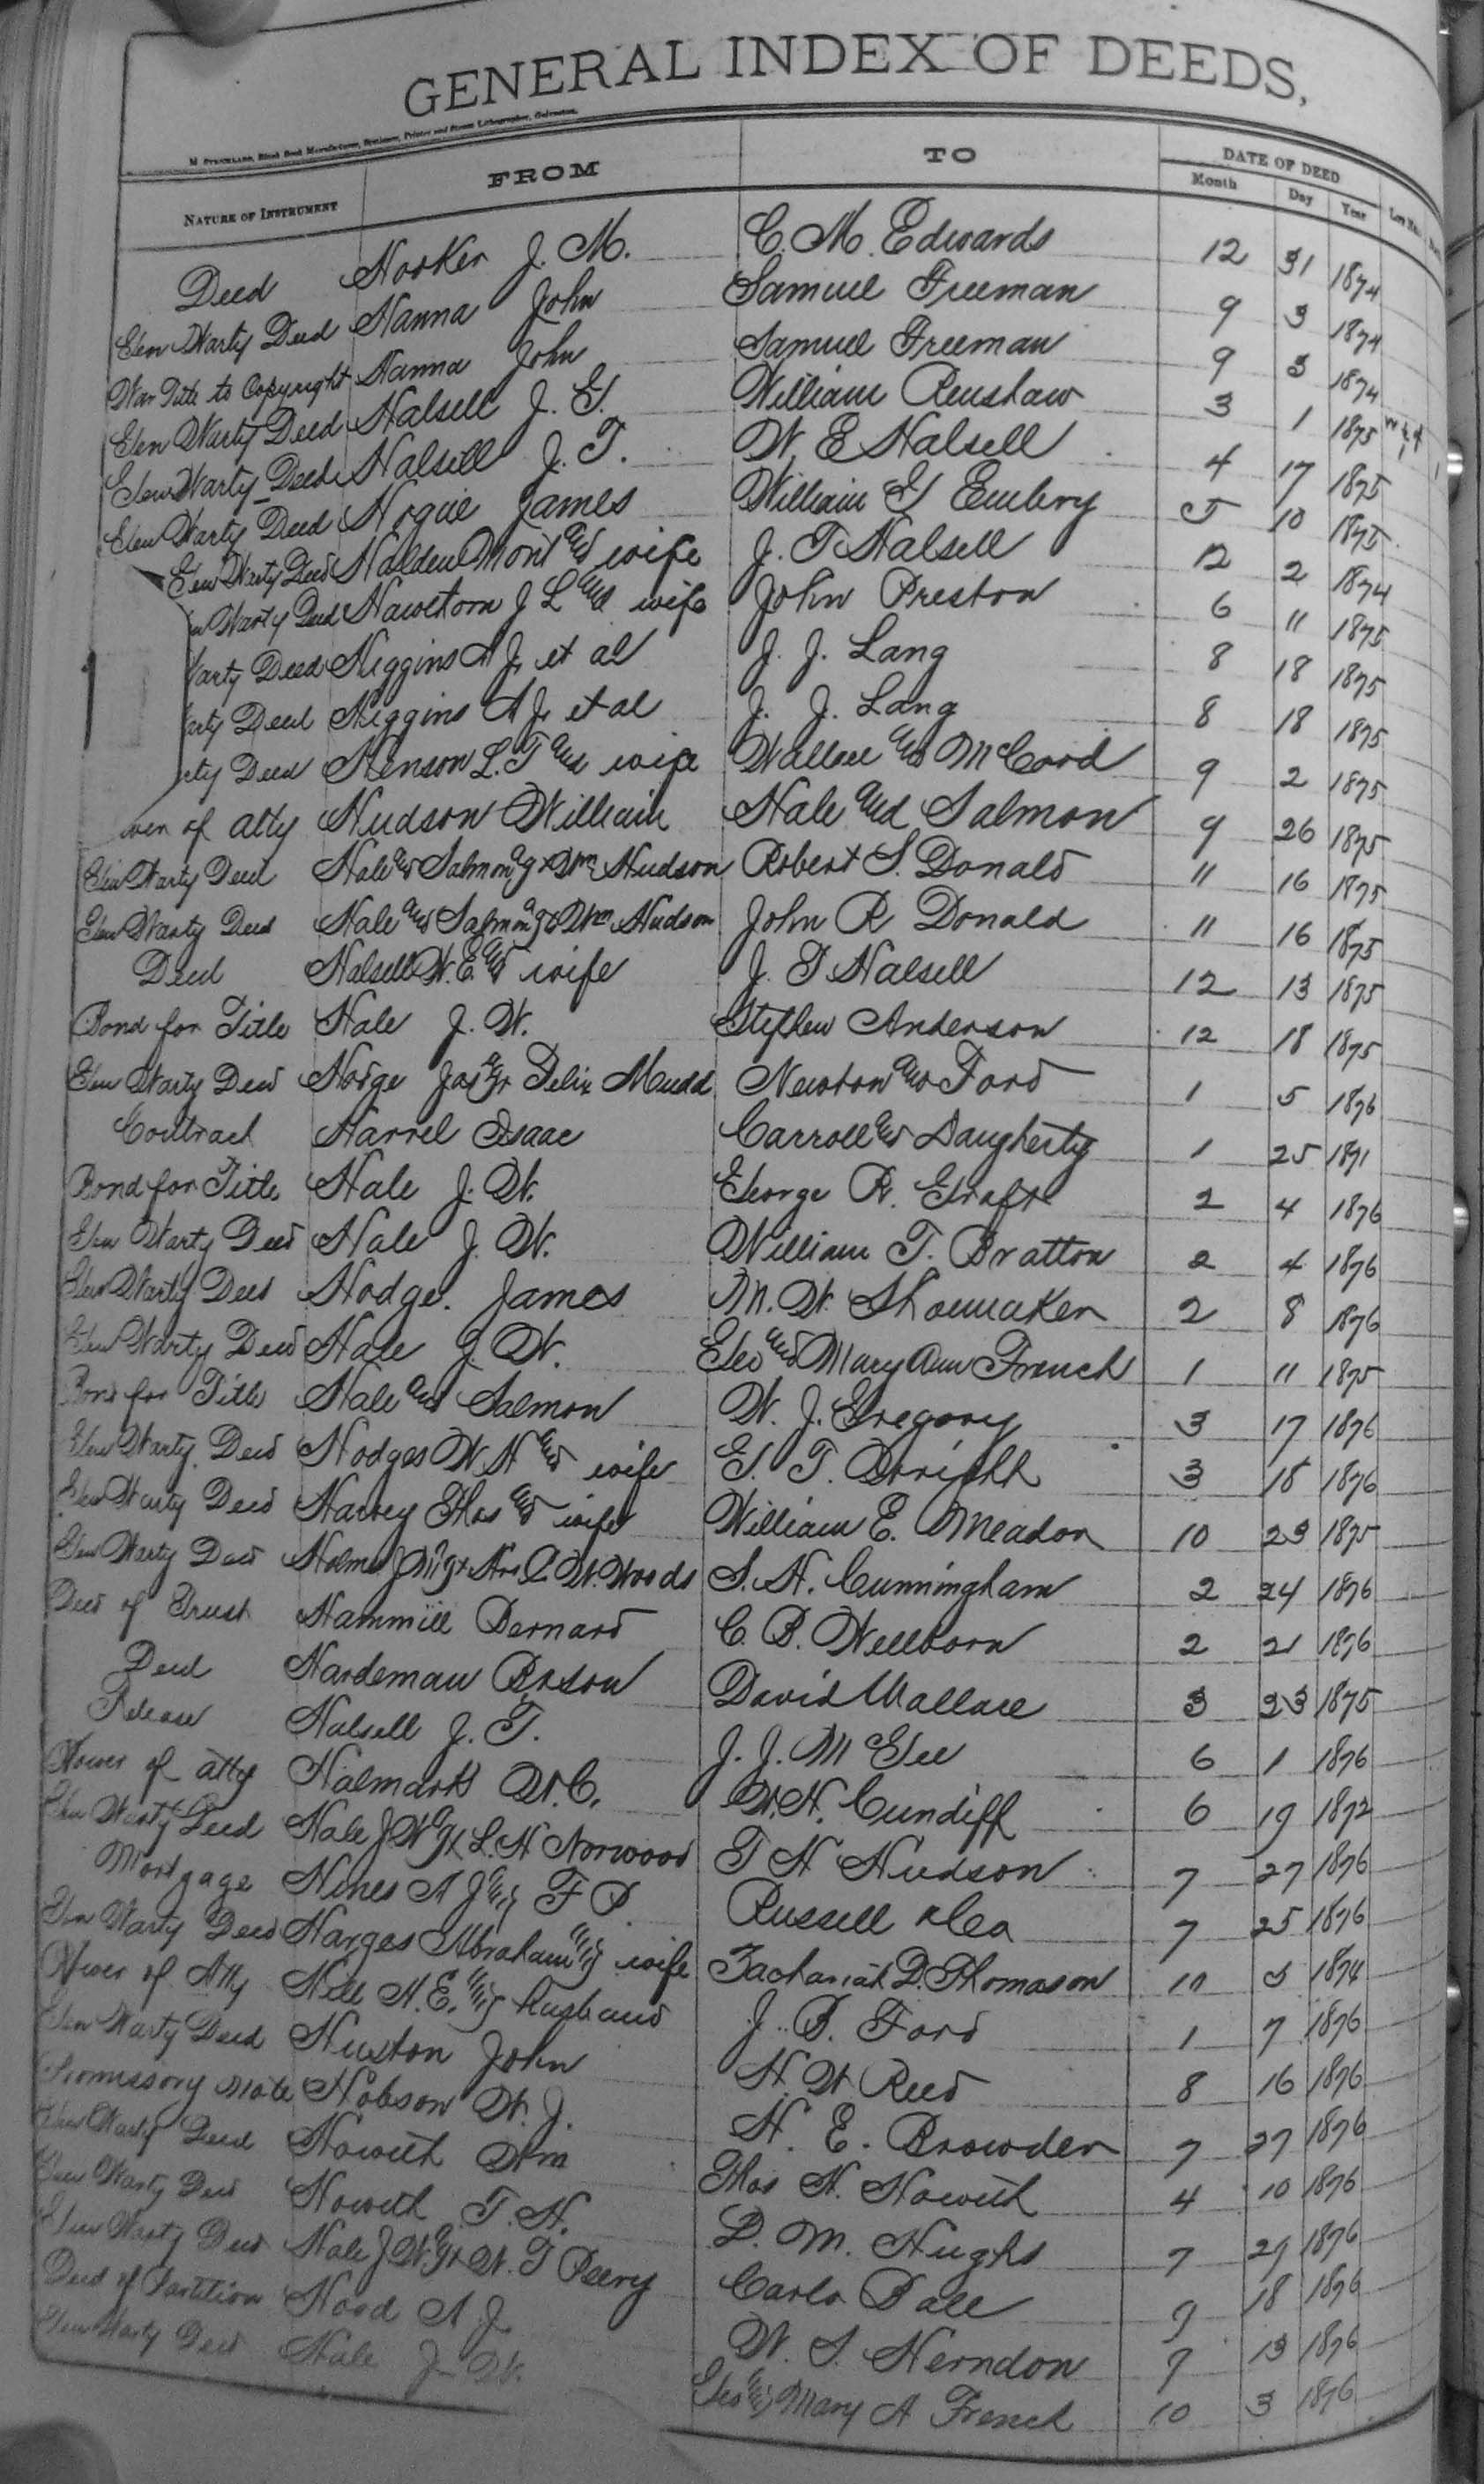 GENERAL INDEX OF DEEDS,
M STRICKLAND, Blank Book Manufacturer, Stationer, Printer and Steam Lithographer, Galveston.
NATURE OF INSTRUMENT FROM TO DATE OF DEED
Month Day Year
Deed Hooker J. M. C. M. Edwards 12 31 1874
Gen Warty Deed Hanna John Samuel Freeman 9 3 1874
War Title to Copyright Hanna John Samuel Freeman 9 3 1874
Gen Warty Deed Halsell J. G. William Renshaw 3 1 1875
Gen Warty Deed Halsell J. T. W. E Halsell 4 17 1875
Gen Warty Deed Hogue James William G Embry 5 10 1875
Gen Warty Deed Halden Mont and wife J. T Halsell 12 2 1874
Warty Deed J L and wife John Preston 6 11 1875
arty Deed Higgins A J, et al J. J. Lang 8 18 1875
arty Deed Higgins A J, et al J. J. Lang 8 18 1875
rty Deed Henson L. T and wife Wallace and McCord 9 2 1875
wer of atty Hudson William Hale and Salmon 9 26 1875
Gen Warty Deed Hale and Salmon agt Wm Hudson Robert S. Donald 11 16 1875
Gen Warty Deed Hale and Salmon agt Wm Hudson John R Donald 11 16 1875
Deed Halsell W. E. and wife J. T Halsell 12 13 1875
Bond for Title Hale J. W. Stephen Anderson 12 18 1875
Gen Warty Deed Hodge Jas agt Felix Mudd Newton and Ford 1 5 1876
Contract Harrel Isaac Carroll and Daugherty 1 25 1871
Bond for Title Hale J. W. George R. Graft 2 4 1876
Gen Warty Deed Hale J. W. William T. Bratton 2 4 1876
Gen Warty Deed Hodge. James M. W. Shoemaker 2 8 1876
Gen Warty Deed Hale J. W. Geo and Mary Ann French 1 11 1875
Bond for Title Hale and Salmon W. J. Gregory 3 17 1876
Gen Warty Deed Hodges W H and wife G. T. Wright 3 18 1876
Gen Warty Deed Harvey Thos and wife William E. Meador 10 23 1875
Gen Warty Deed Holmes J M agt Mrs C. W. Woods S. H. Cunningham 2 24 1876
Deed of Trust Hammill Bernard C. B. Wellborn 2 21 1876
Deed Hardeman David Wallace 3 23 1875
Release Halsell J. T. J. J. M Gee 6 1 1876
Power of atty Halmark W. C. W. H. Cundiff 6 19 1872
Gen Warty Deed Hale J W agt L. H Norwood T H Hudson 7 27 1876
Mortgage Hines A J and F P. Russell & Co 7 25 1876
Gen Warty Deed Harges Abraham and wife Zachariah D. Thomason 11 5 1874
Power of Atty Hill A. E. and husband J. B. Ford 1 7 1876
Gen Warty Deed Huston John H. W Reed 8 16 1876
Promissory Note Hobson W. J. H. E. Browder 7 27 1876
Gen Warty Deed Howeth Wm Thos H. Howeth 4 10 1876
Gen Warty Deed Howeth T. H. D. M. Hughs 7 29 1876
Gen Warty Deed Hale J W agt W. T Peery Carlo Ball 9 18 1876
Deed of Partition Hood A J W. S. Herndon 7 13 1876
Gen Warty Deed Hale J. W. Geo and Mary A French 10 3 1876